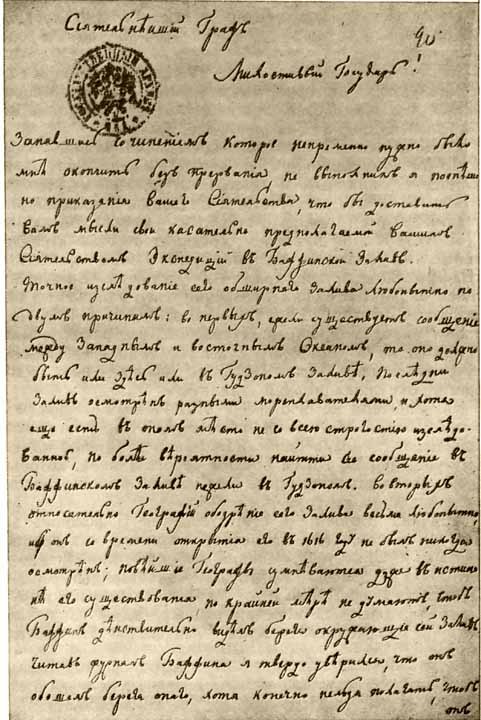 Сіятельнѣишій Графъ
Милостивый Государь!
Занявшись сочиненіемъ которое непременно нужно было
мнѣ окончить безъ прерванія не выполнилъ я
но приказанія Вашего Сіятельства, что бы доставить
Вамъ мысли свои касательно предполагаемой Вашимъ
Сіятельствомъ Экспедиціи въ Баффинской Заливъ.
Точное изслѣдованіе сего обширнаго Залива любопытно по
двумъ причинамъ: во первыхъ, ежели существуетъ сообщеніе
между Западнымъ и восточнымъ Океаномъ, то оно должно
быть или здѣсь или въ Гудзономъ Заливѣ, Послѣдни
Заливъ осмотрѣнъ разными мореплавателями, и хотя
еще есть въ ономъ мѣсто не со всею строгостію изслѣдо-
ванное, но болѣе вѣроятности найти сіе сообщеніе въ
Баффинскомъ Заливѣ нежели въ Гудзономъ. Во вторыхъ
относительно Географіи обозрѣніе сего Залива весьма любопытно,
ибо онъ со времени открытія его въ 1616 году не былъ никогда
осмотрѣнъ; новѣйшіе Географы сумнѣваются даже въ истин
нѣ его существованія по крайней мѣрѣ не думаютъ, чтобъ
Баффинъ дѣйствительно видѣлъ берега окружающіе сей Заливъ
читавъ журналъ Баффина я твердо увѣрился, что онъ
обошелъ берега онаго, хотя конечно нельзя полагать, чтобъ
онъ